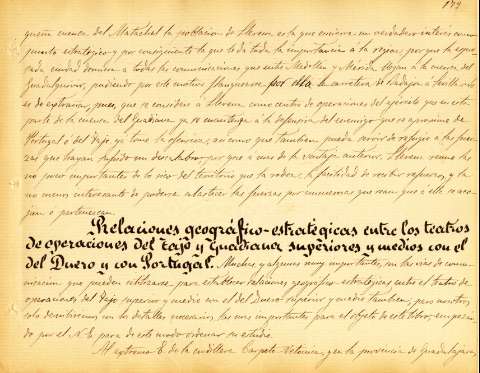 179
queña cuenca del Matachel la poblacion de Llerena, es la que encierra un verdadero interés como
punto estratégico y por consiguiente la que le da toda la importancia á la region; por que la expre-
sada ciudad domina á todas las comunicaciones que entre Medellin y Mérida llegan á la cuenca del
Guadalquivir, pudiendo por este motivo flanquearse por ella la carretera de Badajoz á Sevilla; no
es de extrañar, pues, que se considere á Llerena como centro de operaciones del ejército que en esta
parte de la cuenca del Guadiana ya se encuentre á la defensiva del enemigo que se aproxime de
Portugal ó del Tajo ya tome la ofensiva; así como que tambien pueda servir de refugio á las fuer-
zas que hayan sufrido un descalabro; por que á mas de la ventaja anterior, Llerena reune las
no poco importantes de lo rico del territorio que la rodea, la facilidad de recibir refuerzos, y la
no menos interesante de poderse abastecer las fuerzas por numerosas que sean que á ella se aco-
jan ó pertenezcan.
Relaciones geográfico-estratégicas entre los teatros
de operaciones del Tajo y Guadiana superiores y medios con el
del Duero y con Portugal. Muchas, y algunas muy importantes, son las vias de comu-
nicacion que pueden utilizarse para establecer relaciones geográfico-estratégicas entre el teatro de
operaciones del Tajo superior y medio con el del Duero superior y medio tambien; pero nosotros
solo describiremos con los detalles necesarios las mas importantes para el objeto de este libro, empezan-
do por el N.E. para de este modo ordenar su estudio.
Al extremo E. de la cordillera Carpeto-Vetónica, y en la provincia de Guadalajara,